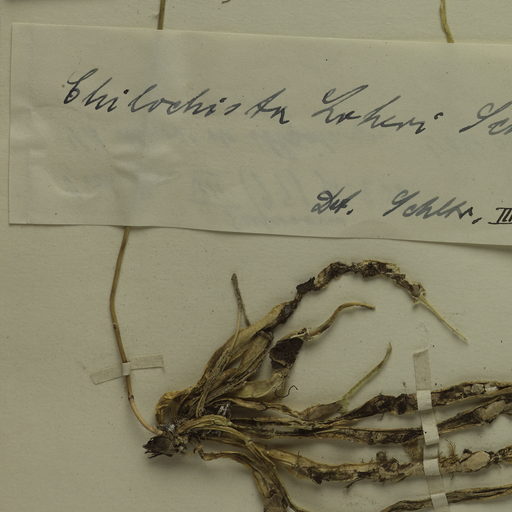 Chilochista Loheri Sch
Det. Schltr. III